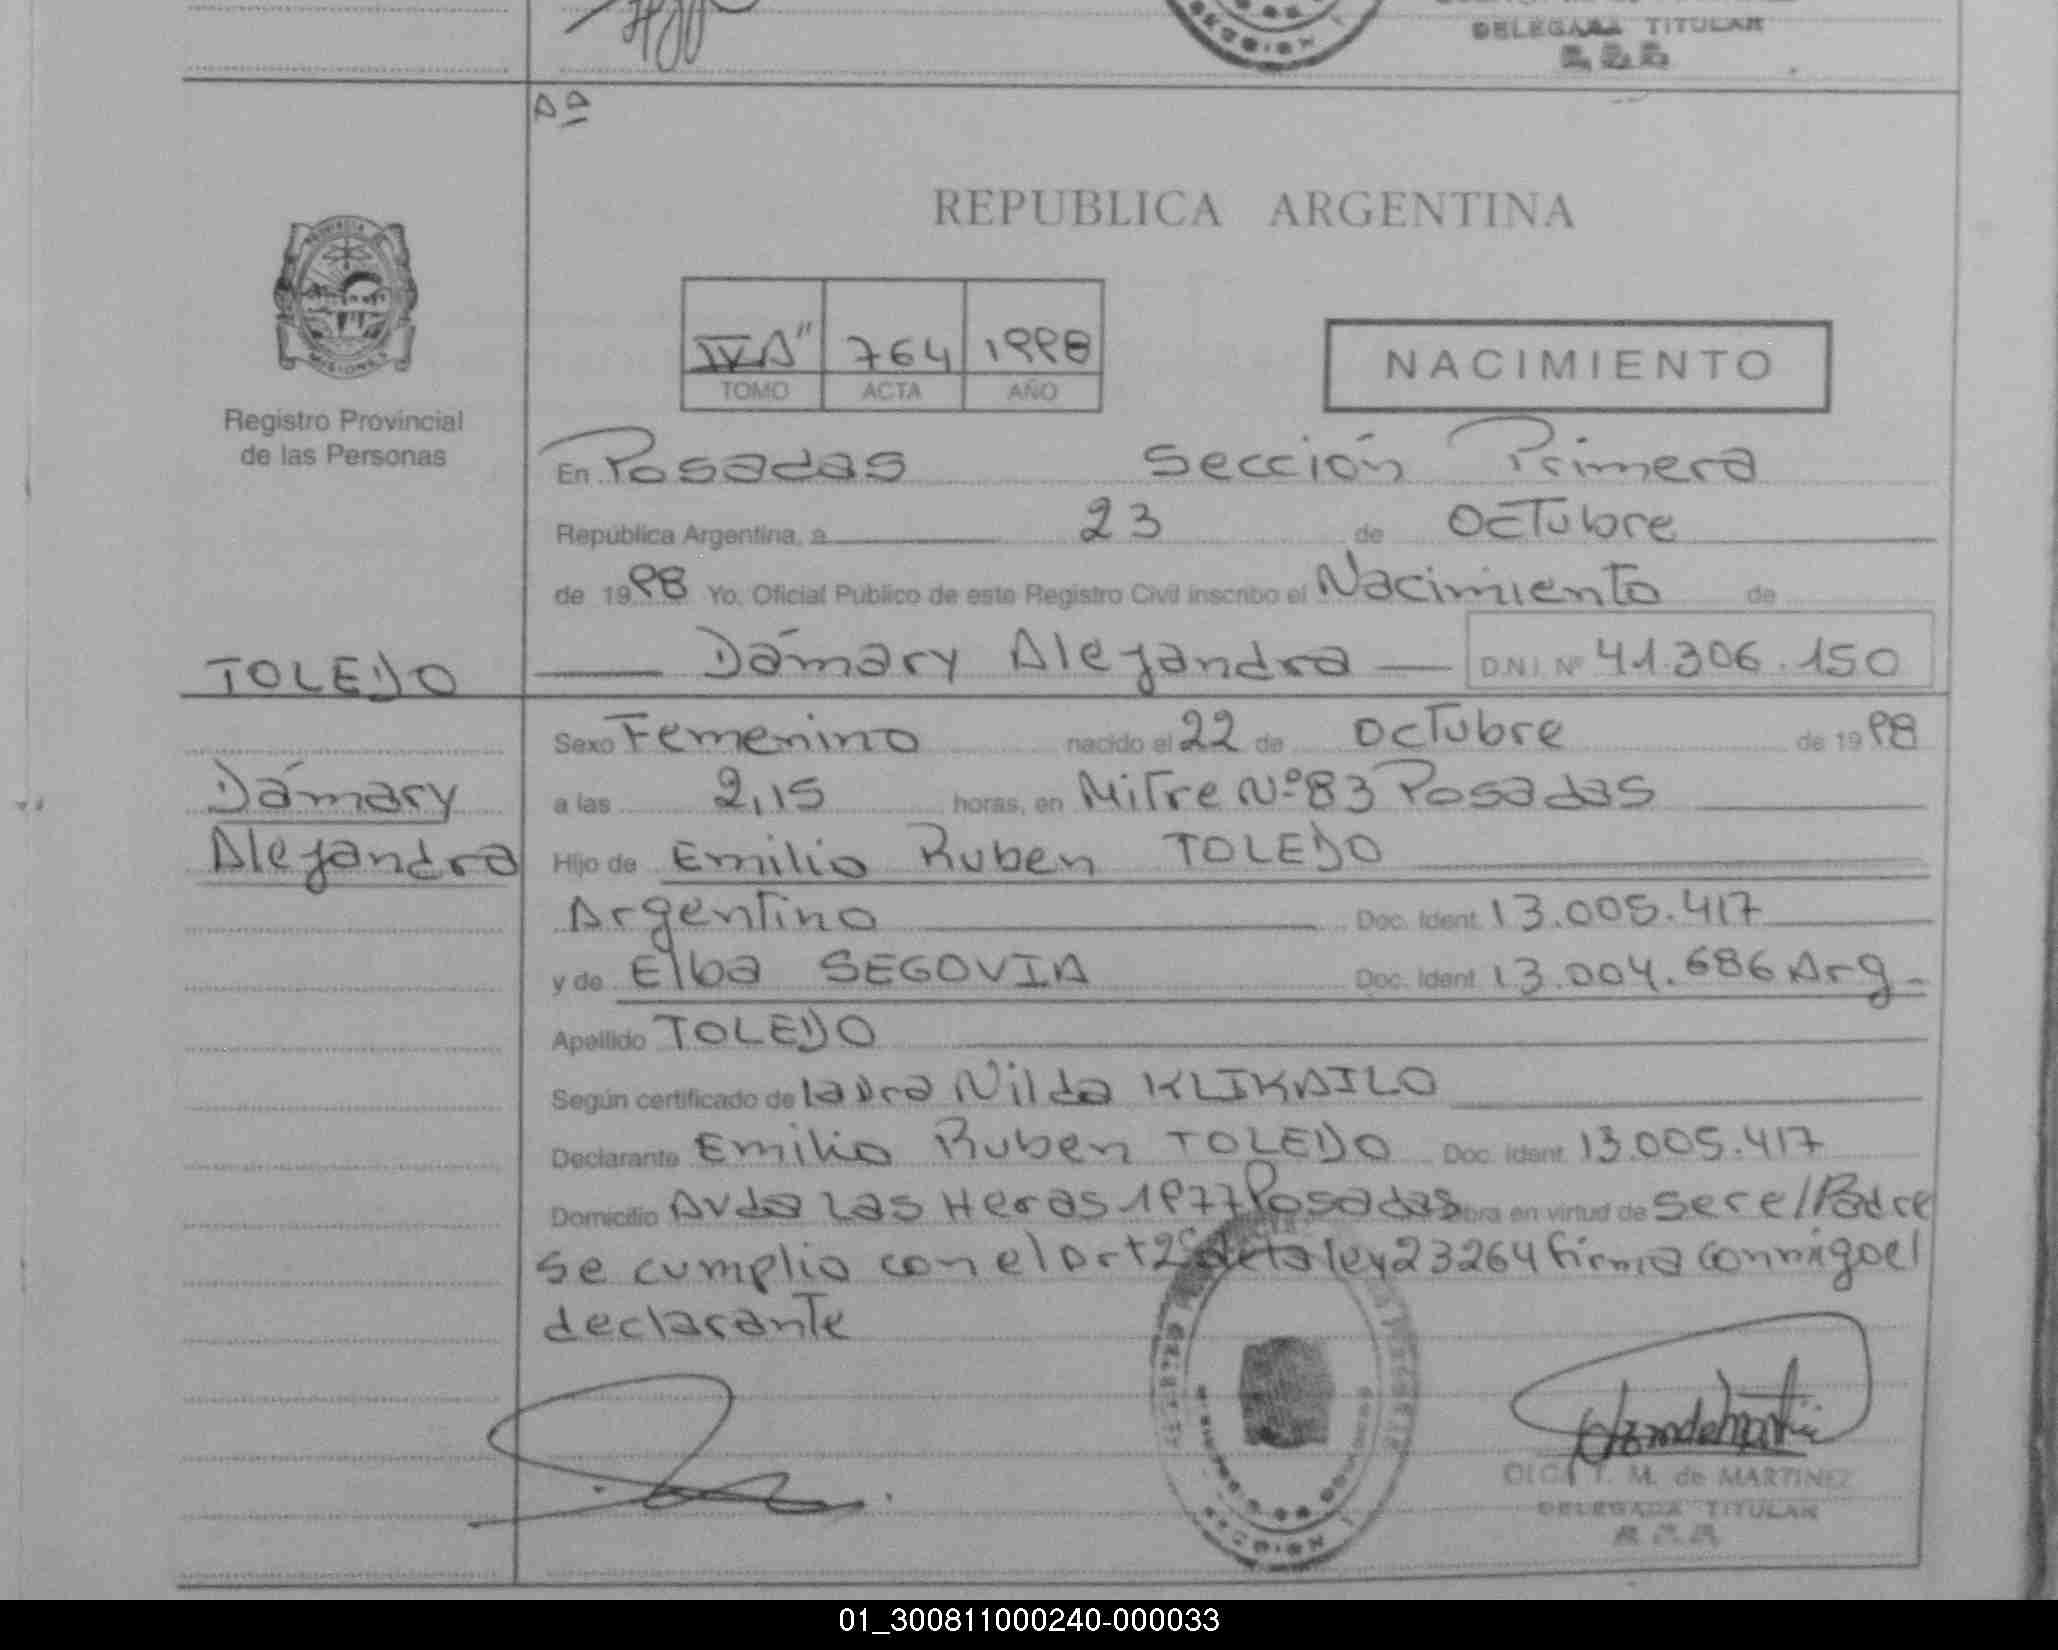 DELEGADA TITULAR
Aª
REPUBLICA ARGENTINA
PROVINCIA DE
MISIONES
IV A" 764 1998
TOMO ACTA AÑO
NACIMIENTO
Registro Provincial
de las Personas
En Posadas Sección Primera
República Argentina, a 23 de Octubre
de 1998 Yo. Oficial Público de este Registro Civil inscribo el Nacimiento de
TOLEDO
Dámary Alejandra D.N.I. Nº 41.306.150
Sexo Femenino nacido el 22 de Octubre de 1998
Dámary
Alejandra
a las 2,15 horas, en Mitre Nº 83 Posadas
Hijo de Emilio Ruben TOLEDO
Argentino Doc. Ident. 13.005.417
y de Elba SEGOVIA Doc. Ident. 13.004.686 Arg.
Apellido TOLEDO
Según certificado de Laura Nilda KLIKAILO
Declarante Emilio Ruben TOLEDO Doc. Ident. 13.005.417
Domicilio Avda Las Heras 1977 Posadas obra en virtud de ser el Padre
se cumplio con el Art 2º de la ley 23264 firma conmigo el
declarante
OLGA T. M. de MARTINEZ
DELEGADA TITULAR
SECCION 1
01_300811000240-000033